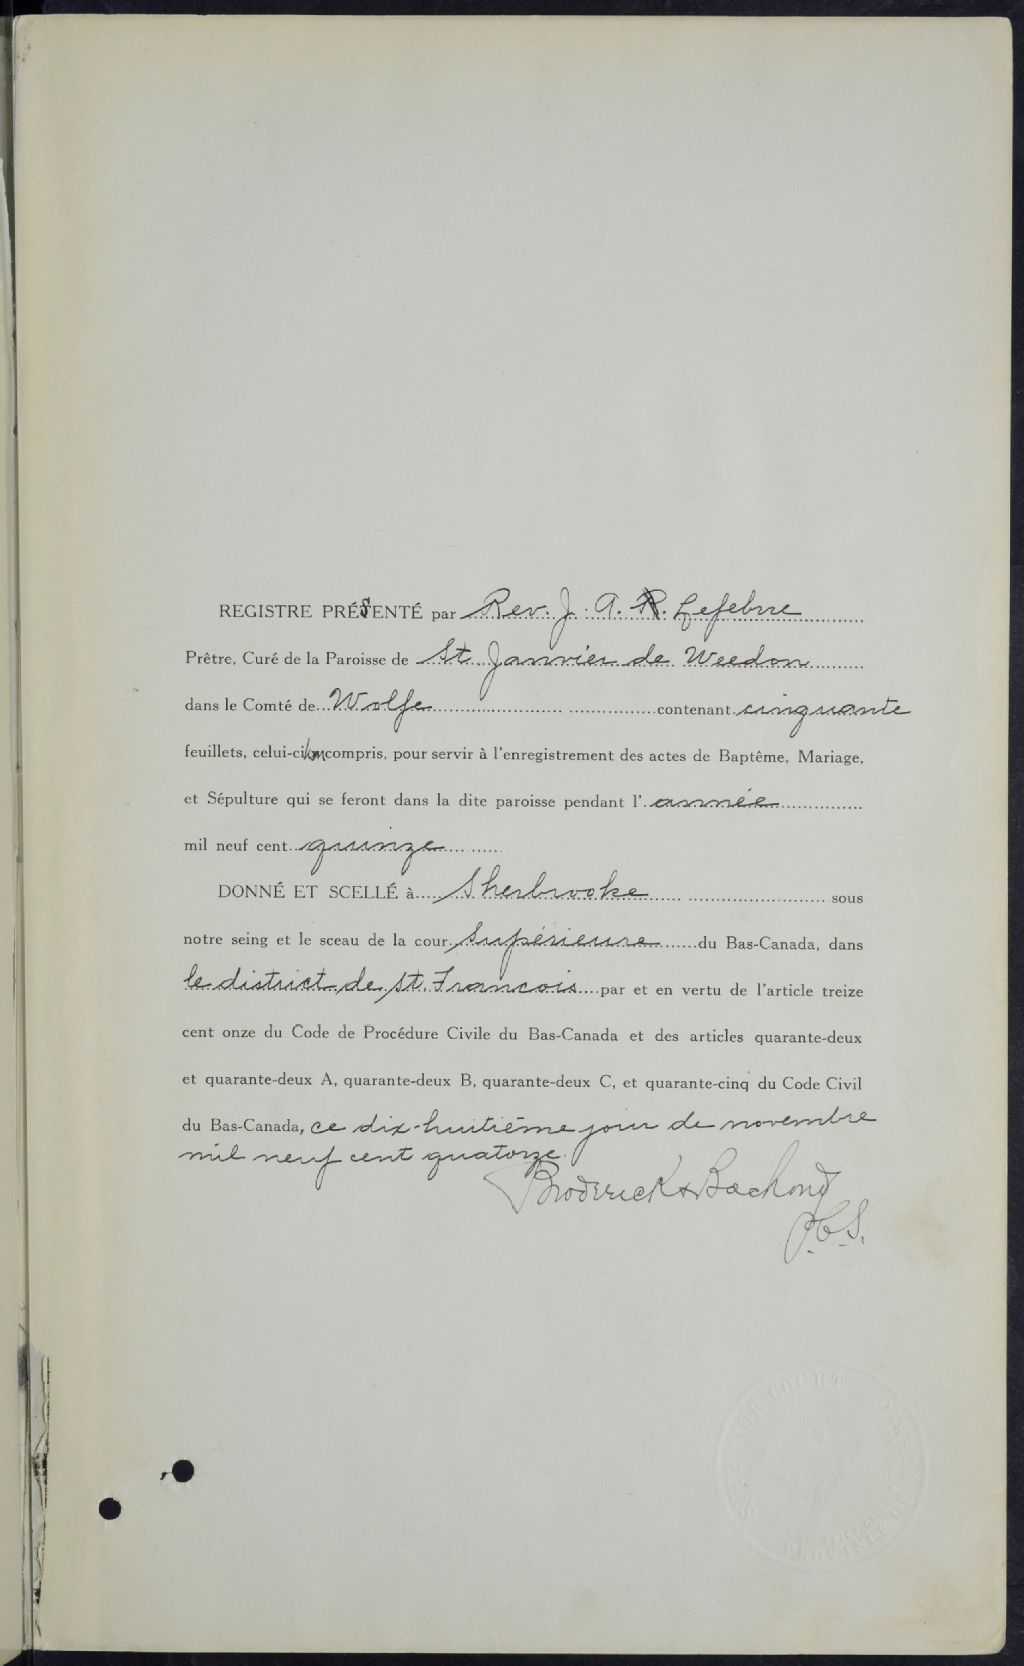 REGISTRE PRÉSENTÉ par Rev. J. A. R. Lefebvre
Prêtre, Curé de la Paroisse de St. Janvier de Weedon
dans le Comté de Wolfe contenant cinquante
feuillets, celui-ci non compris, pour servir à l'enregistrement des actes de Baptême, Mariage,
et Sépulture qui se feront dans la dite paroisse pendant l'année
mil neuf cent quinze
DONNÉ ET SCELLÉ à Sherbrooke sous
notre seing et le sceau de la cour Supérieure du Bas-Canada, dans
le district de St. Francois par et en vertu de l'article treize
cent onze du Code de Procédure Civile du Bas-Canada et des articles quarante-deux
et quarante-deux A, quarante-deux B, quarante-deux C, et quarante-cinq du Code Civil
du Bas-Canada, ce dix-huitième jour de novembre
mil neuf cent quatorze.
Broderick & Bachand
P.C.S.
COURT
PROVINCE OF